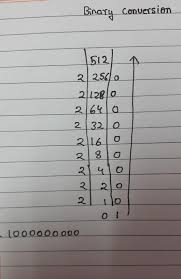 Binary Conversion
512
2 256 0
2 128 0
2 64 0
2 32 0
2 16 0
2 8 0
2 4 0
2 2 0
2 1 0
0 1
1000000000